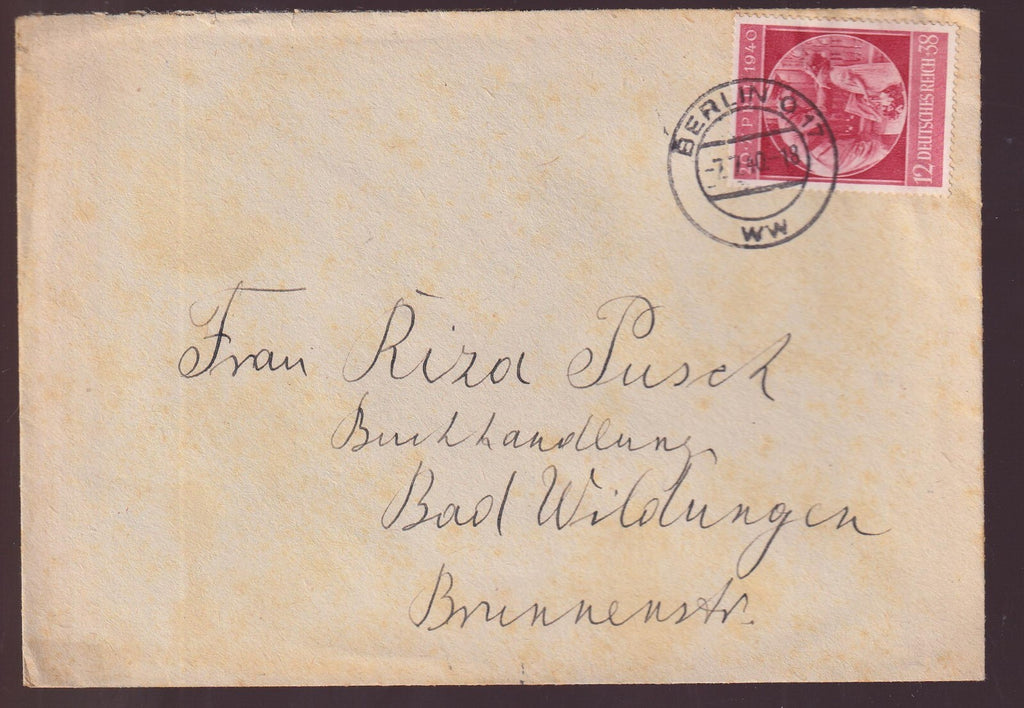 20. APRIL 1940
12 DEUTSCHES REICH +38
BERLIN O 17
-7.7.40.-18
WW
Frau Riza Pusch
Buchhandlung
Bad Wildungen
Brunnenstr.